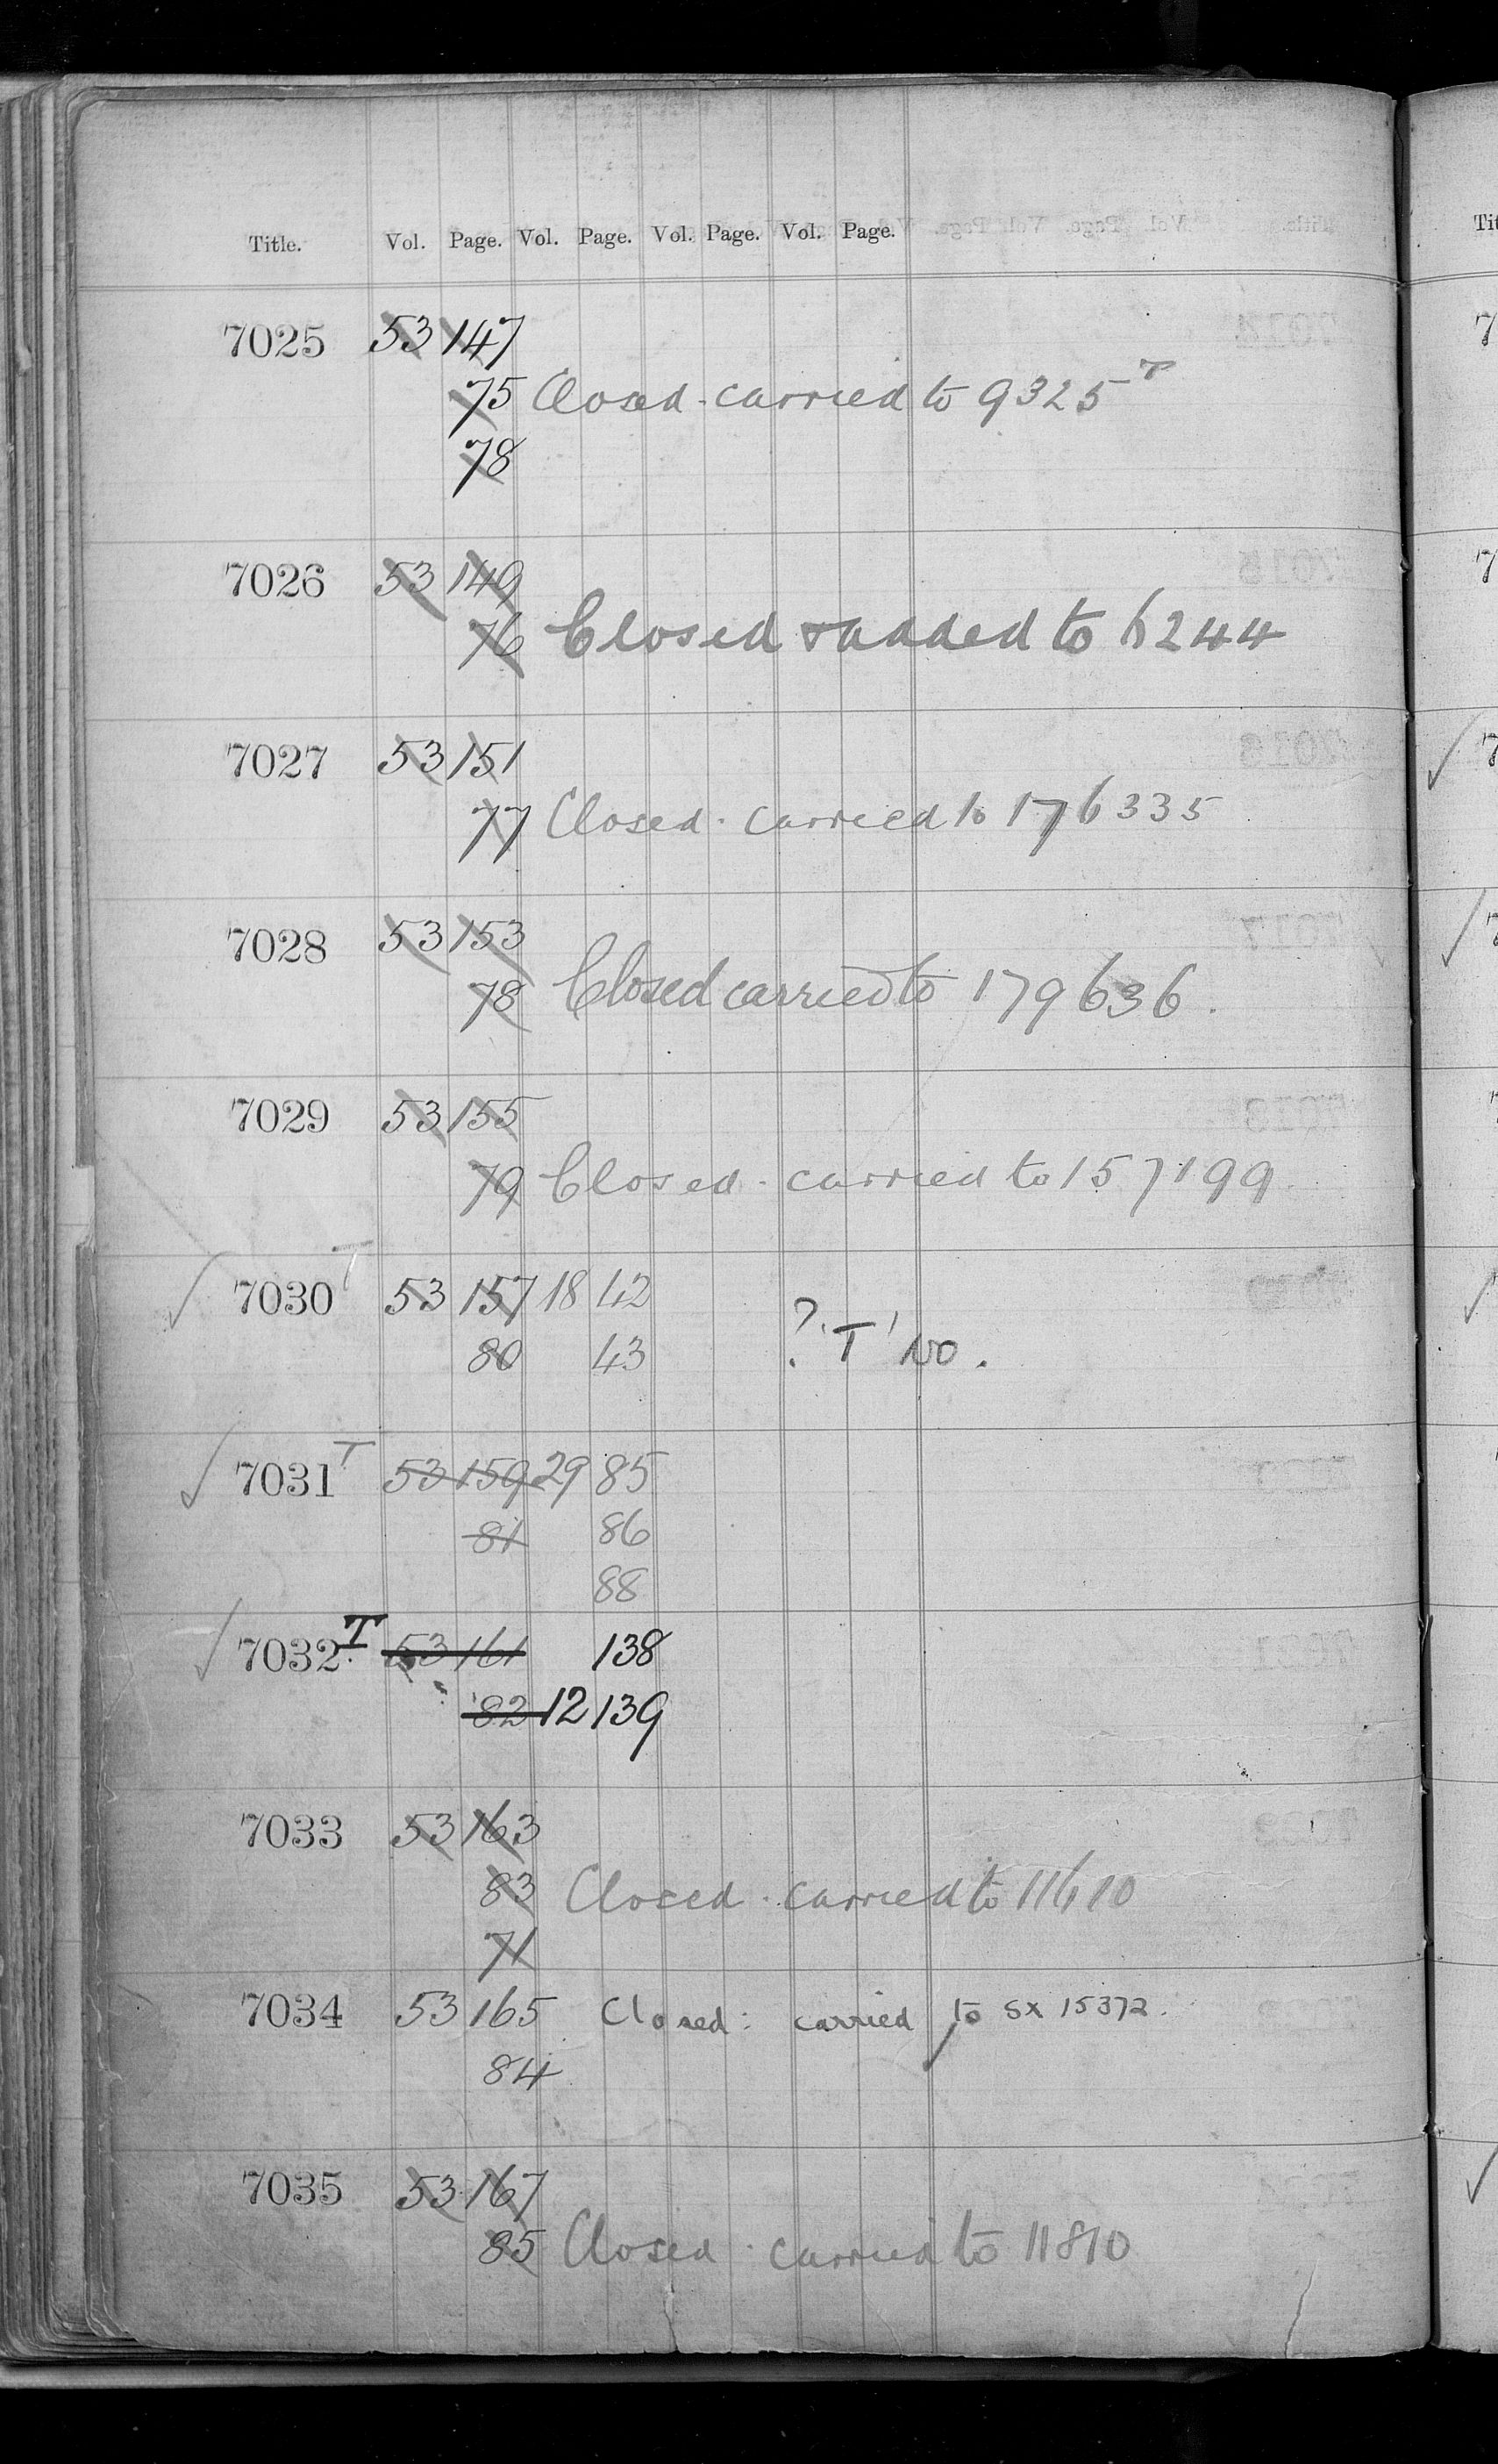 Title. Vol. Page. Vol. Page. Vol. Page. Vol. Page.
7025 53 147
75 Closed - carried to 9325 T
78
7026 53 149
76 Closed & added to 6244
7027 53 151
77 Closed - carried to 176335
7028 53 153
78 Closed carried to 179636.
7029 53 155
79 Closed - carried to 157199
✓ 7030 T 53 157 18 42
80 43 ? 'T' No.
✓ 7031 T 53 159 29 85
81 86
88
✓ 7032 T 53 161 138
82 12 139
7033 53 163
83 Closed - carried to 11610
71
7034 53 165 Closed: carried to SX 15372.
84
7035 53 167
85 Closed - carried to 11810